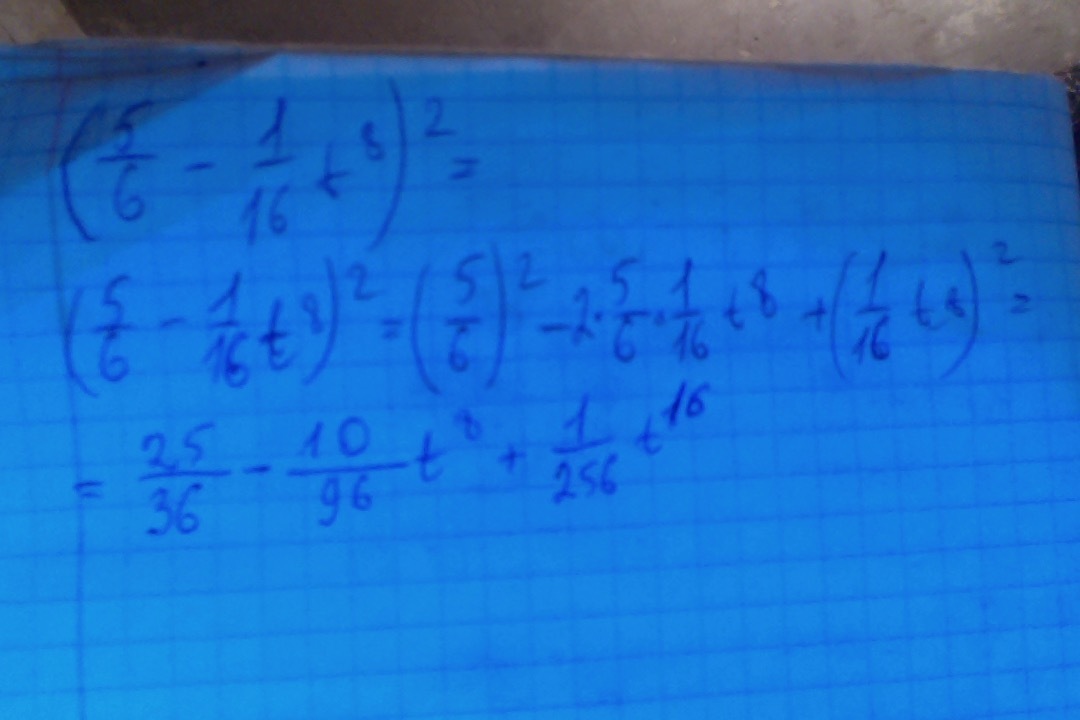 (5/6 - 1/16 t^8)^2 =
(5/6 - 1/16 t^8)^2 = (5/6)^2 - 2·5/6·1/16 t^8 + (1/16 t^8)^2 =
= 25/36 - 10/96 t^8 + 1/256 t^16